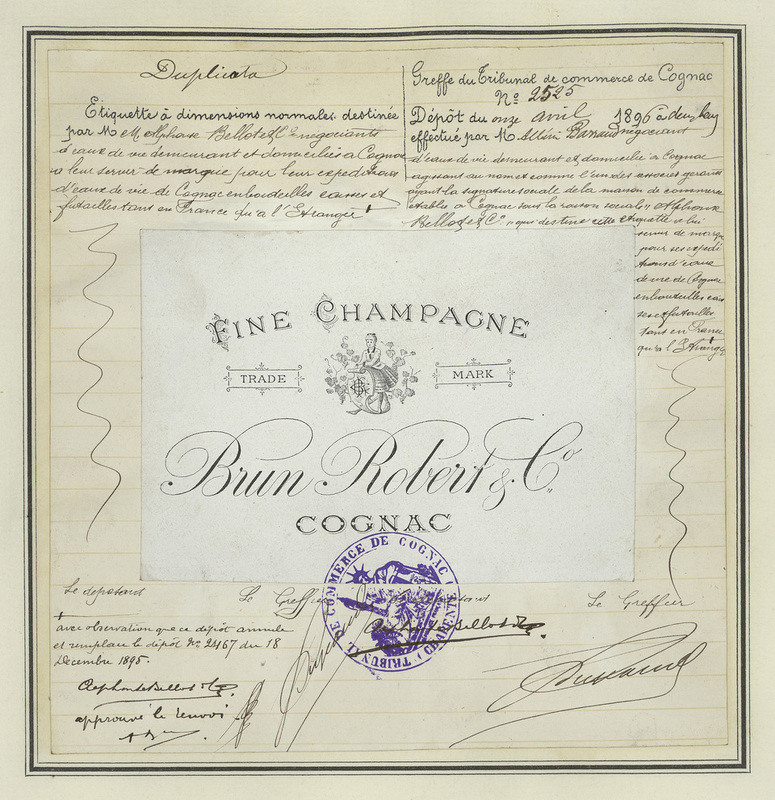 Duplicata
Etiquette à dimensions normales destinée
par M. Alphonse Bellot & Cie négociants
d'eaux de vie demeurant et domiciliés à Cognac
à leur servir de marque pour leur expéditions
d'eaux de vie de Cognac en bouteilles caisses et
futailles tant en France qu'à l'Etranger
Greffe du Tribunal de commerce de Cognac
No 2525
Dépôt du onze avril 1896 à deux
effectué par M. négociant
d'eaux de vie demeurant et domicilié à Cognac
agissant au nom et comme l'un des associés gérants
ayant la signature sociale de la maison de commerce
établie à Cognac sous la raison sociale „ Alphonse
Bellot & Co „ qui destine cette étiquette à lui
servir de marque
pour ses expédi
tions d'eaux
de vie de Cognac
en bouteilles cais
ses et futailles
tant en France
qu'à l'Etranger
FINE CHAMPAGNE
TRADE MARK
Brun Robert & Co
COGNAC
TRIBUNAL DE COMMERCE DE COGNAC (CHARENTE)
Le déposant Le Greffier Le déposant Le Greffier
avec observation que ce dépôt annule
et remplace le dépôt No 2467 du 18
Décembre 1895.
Alphonse Bellot & Co
approuvé le renvoi